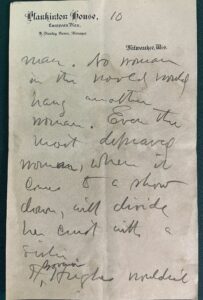 Plankinton House, 10
European Plan,
Milwaukee, Wis.
man. No woman
in the world would
hang another
woman. Even the
most depraved
woman, when it
comes to a show
down, will divide
her crust with a
sister
Hughes